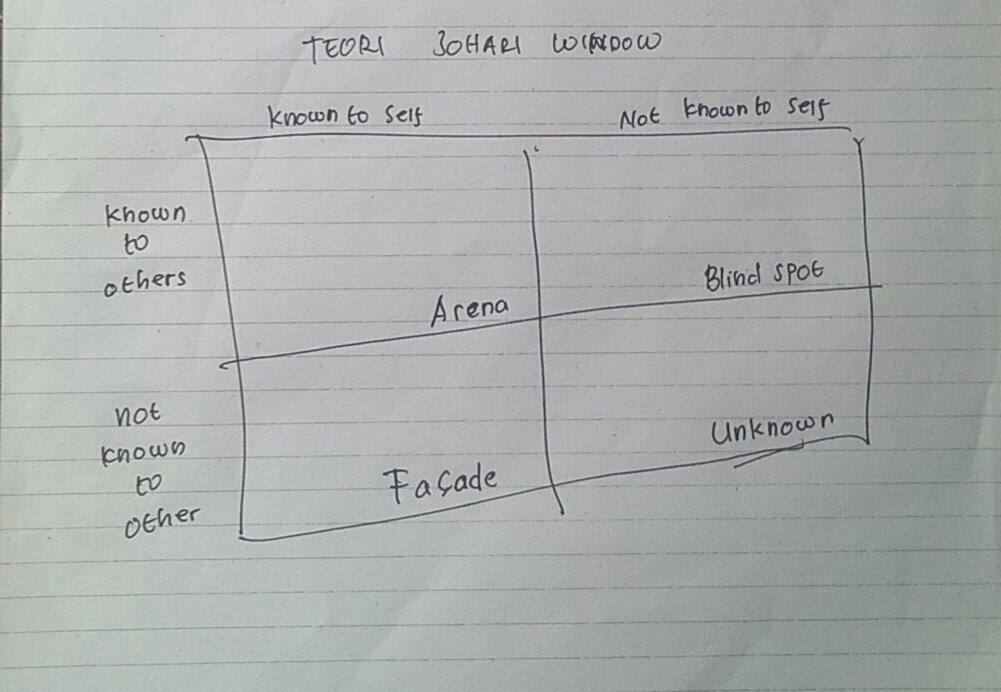 TEORI JOHARI WINDOW
Known to Self
Not known to Self
known
to
others
Arena
Blind spot
not
known
to
other
Façade
Unknown